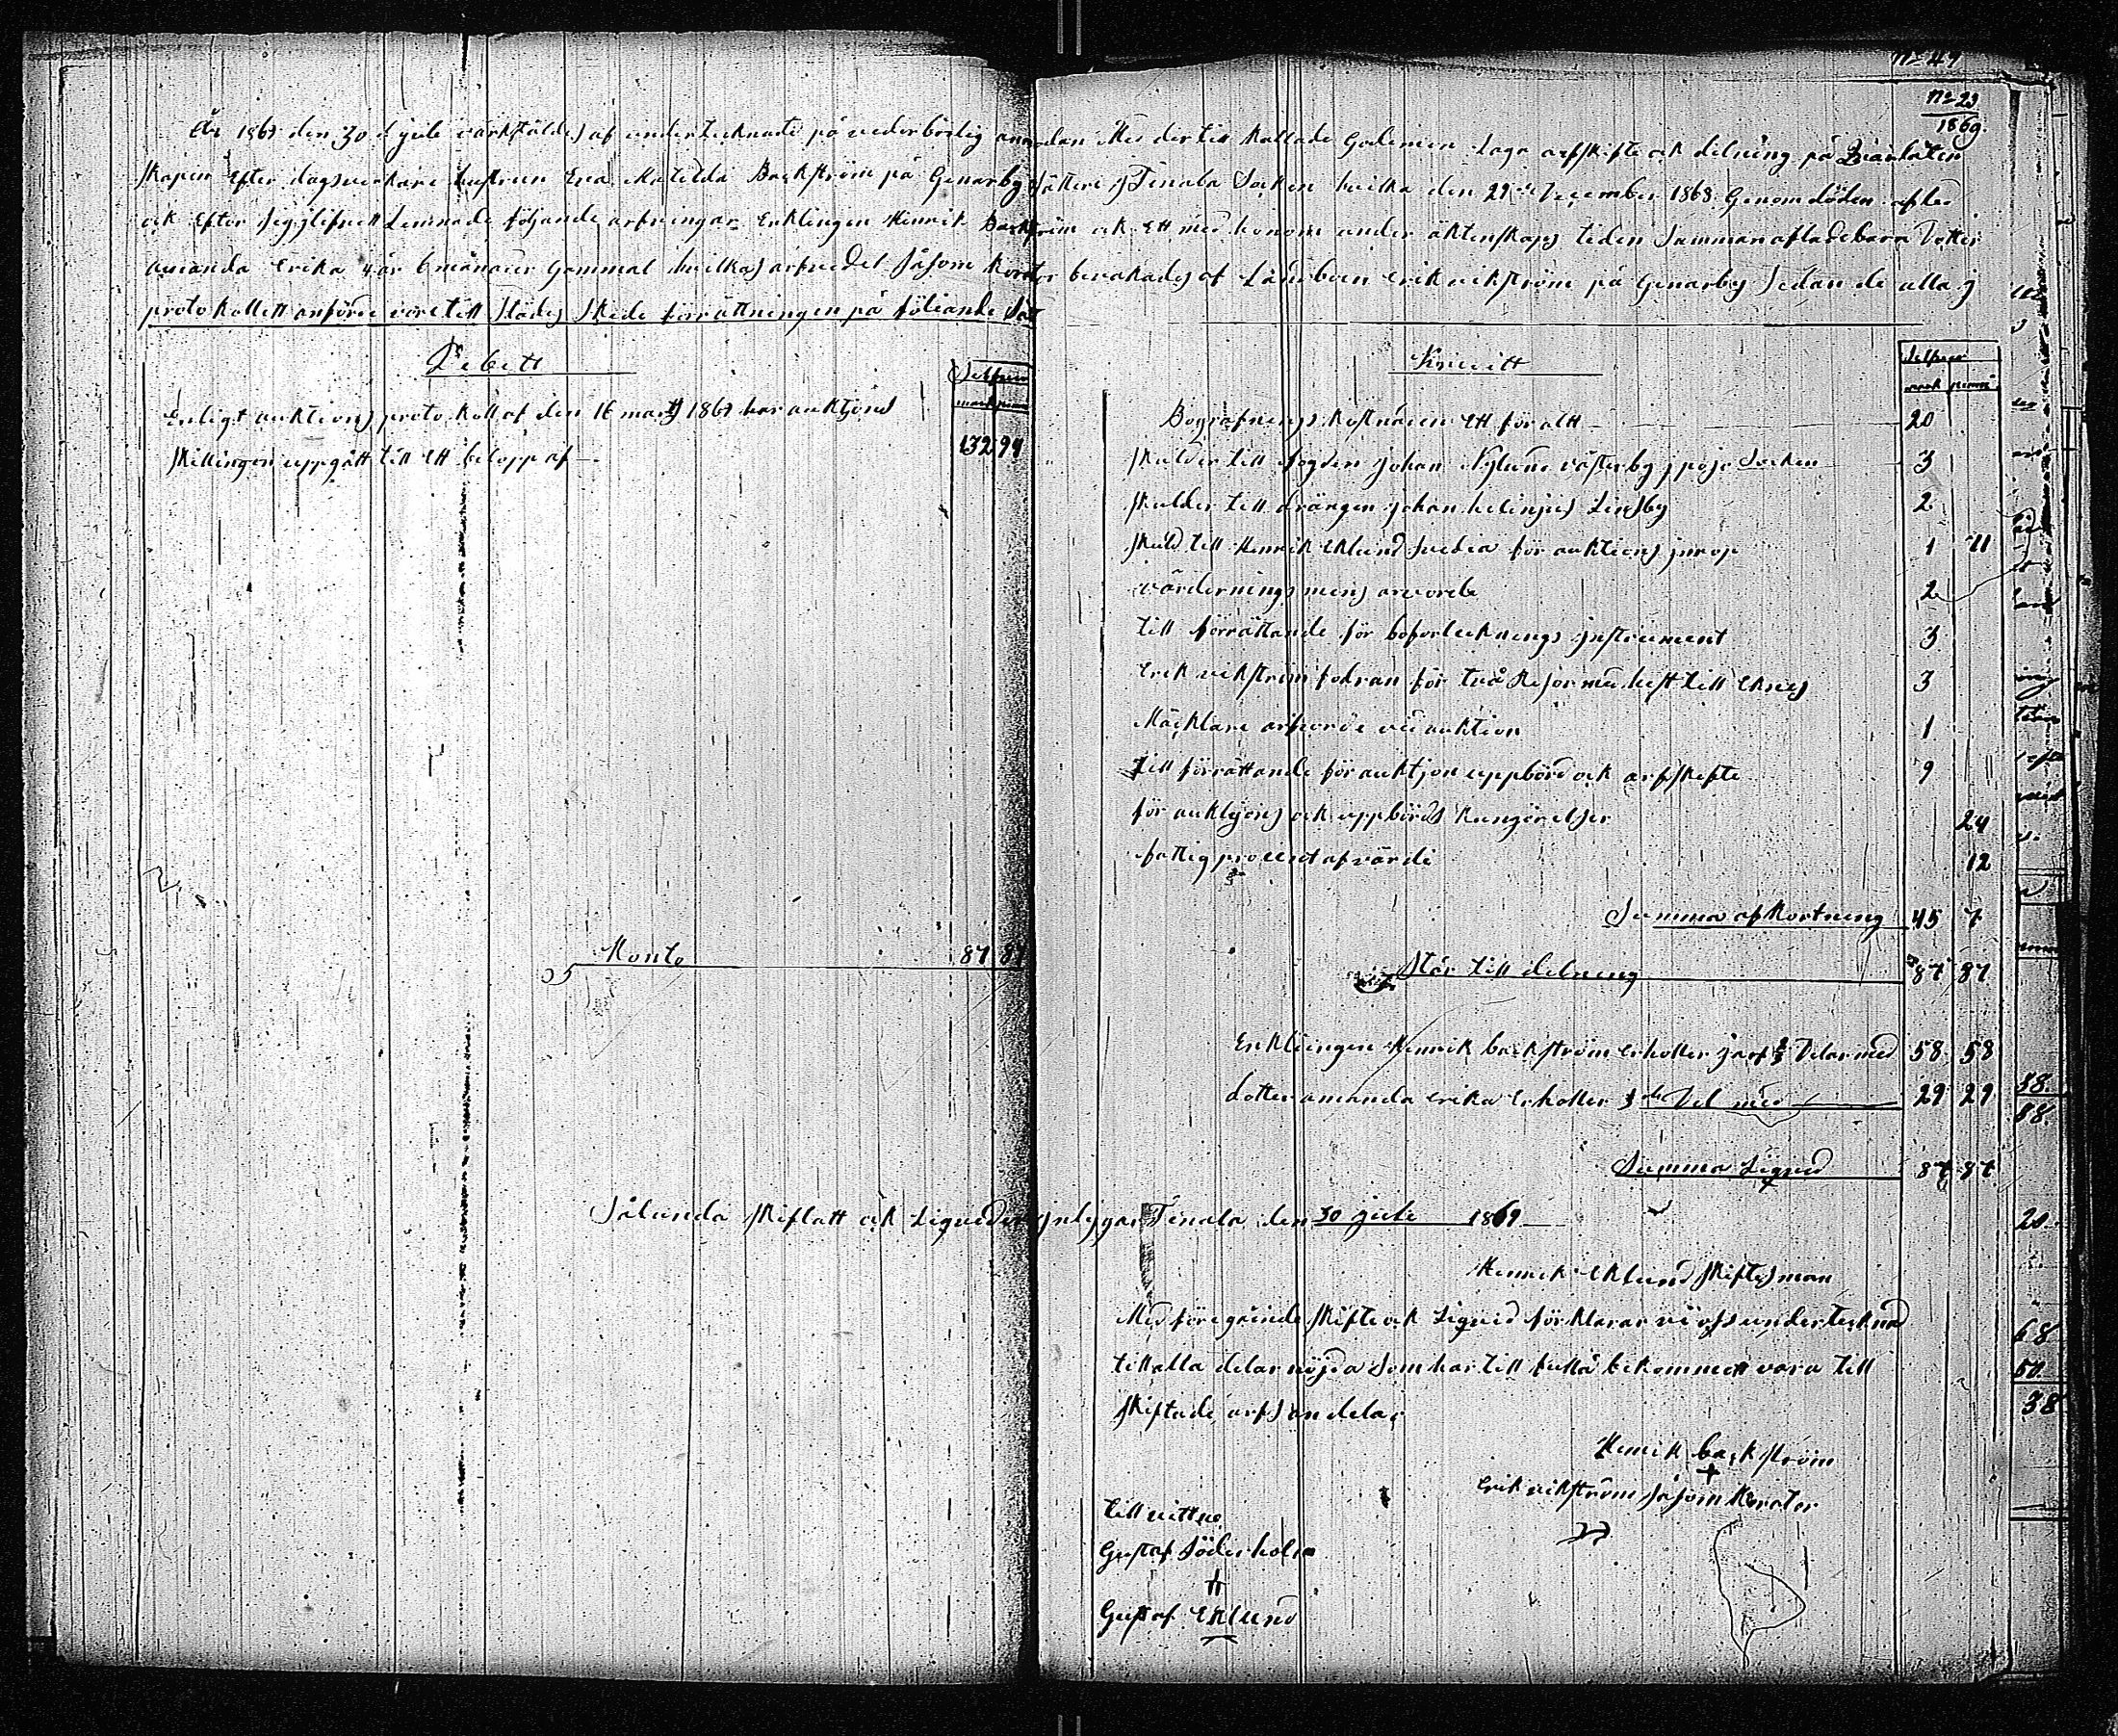 No 47
No 29
1869.
År 1869 den 30 de Juli värkstäldes af undertecknade på vederbörlig anmodan Mes dertill kallade Godemän Laga arfskifte ock delning på Qvarlåten
skapen Efter dagsverkare hustrun Eva Matilda Backström på Genarby Säteri j Tenala Socken hvilka den 29 de December 1868 Genom döden afled
ock Efter sig j lifvett Lemnade följande arfvingar Enklingen Henrik Backström ock Ett med honom under äktenskaps tiden Sammanaflade barn Dotter
amanda Erika 4 år 6 månarer Gammal hvilkas arfvedel Såsom Korator bevakades af Lånbven Erik vikström på Genarby Sedan de alla j
protokollett anförde voro till städes Skede förrättningen på följande Sätt
Debett
Silfver
mark penni
Enligt auktions protokoll af den 16 marsj 1869 har auktjons
skillingen uppgått till Ett belopp af
132 94
Konto 87 87
Kreditt
Silfver
mark penni
Begrafnings kostnaden Ett för allt 20
Skulder till Fogden Johan Nylund västerby j pojo Socken 3
Skulder till drängen Johan helinjus Linsby 2
Skuld till Henrik Eklund Svedia för auktions prop 1 71
värdernings mens arvorde 2
till förrättande för boförtecknings jnstrument 3
Erik vikström fodran för två Resor med hest till Eknes 3
Mäcklare arfvorde ved auktion 1
till förrättande för auktjon uppbörd ock arfskifte 9
för auktjons ock uppbörds kungörelser 24
fattig procent af värdi 12
Summa afkortning 45 7
Står till delning 87 87
Enklingen Henrik backström Erholler j arf 2/3 Delar med 58 58
dotter amanda Erika Erholler 1/3 de Del med 29 29
Summa Liqvid 87 87
Sålunda skiftatt ock Liqvideratt jntygar Tenala den 30 Juli 1869
Henrik Eklund skiftesman
Med föregående skifte ock Liqvid förklarar vi oss undertecknad
till alla delar nöjda Som har till fulla bekommett vara till
skiftade arfs andelar
Henrik backström
Erik vikström såsom Korator
till vittne
Gustaf Söderholm
Gustaf Eklund